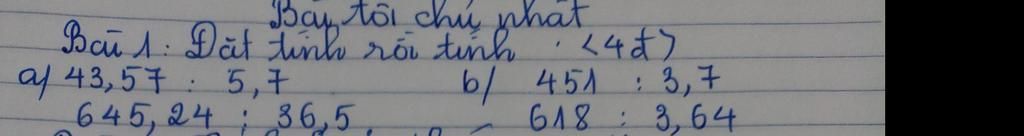 Bài tối chủ nhật
Bài 1: Đặt tính rồi tính. <4đ>
a/ 43,57 : 5,7 b/ 451 : 3,7
645,24 : 36,5 618 : 3,64